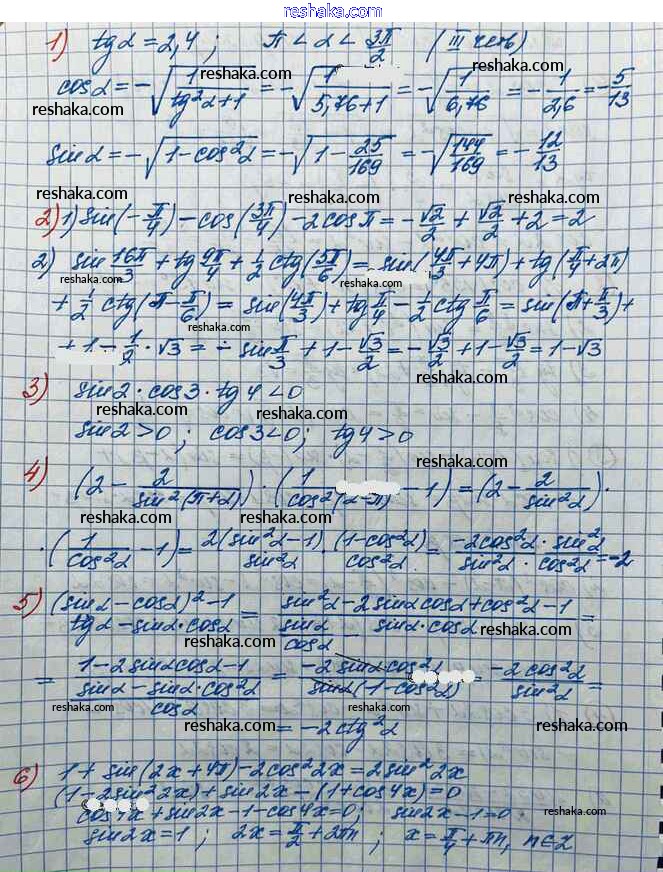 reshaka.com reshaka.com
1) tgα = 2,4 ; π < α < 3π/2 (III четв)
cosα = -√(1/(tg²α+1)) = -√(1/(5,76+1)) = -√(1/6,76) = -1/2,6 = -5/13
sinα = -√(1-cos²α) = -√(1-25/169) = -√(144/169) = -12/13
2) 1) sin(-π/4) - cos(3π/4) - 2cosπ = -√2/2 + √2/2 + 2 = 2
2) sin 16π/3 + tg 9π/4 + 1/2 ctg(5π/6) = sin(4π/3 + 4π) + tg(π/4 + 2π)
+ 1/2 ctg(π - π/6) = sin(4π/3) + tg π/4 - 1/2 ctg π/6 = sin(π + π/3) +
+ 1 - 1/2 · √3 = - sin π/3 + 1 - √3/2 = -√3/2 + 1 - √3/2 = 1 - √3
3) sin2 · cos3 · tg4 < 0
sin2 > 0 ; cos3 < 0 ; tg4 > 0
4) (2 - 2/sin²(π+α)) · (1/cos²(α-π) - 1) = (2 - 2/sin²α) ·
· (1/cos²α - 1) = 2(sin²α-1)/sin²α · (1-cos²α)/cos²α = -2cos²α · sin²α/sin²α · cos²α = -2
5) (sinα - cosα)² - 1/tgα - sinα · cosα = sin²α - 2sinαcosα + cos²α - 1/sinα/cosα - sinα · cosα =
= 1 - 2sinαcosα - 1/sinα - sinα · cos²α/cosα = -2sinαcos²α/sinα(1-cos²α) = -2cos²α/sin²α =
= -2ctg²α
6) 1 + sin(2x + 4π) - 2cos²2x = 2sin²2x
(1 - 2sin²2x) + sin2x - (1 + cos4x) = 0
cos4x + sin2x - 1 - cos4x = 0; sin2x - 1 = 0
sin2x = 1 ; 2x = π/2 + 2πn ; x = π/4 + πn, n∈Z
reshaka.com reshaka.com reshaka.com